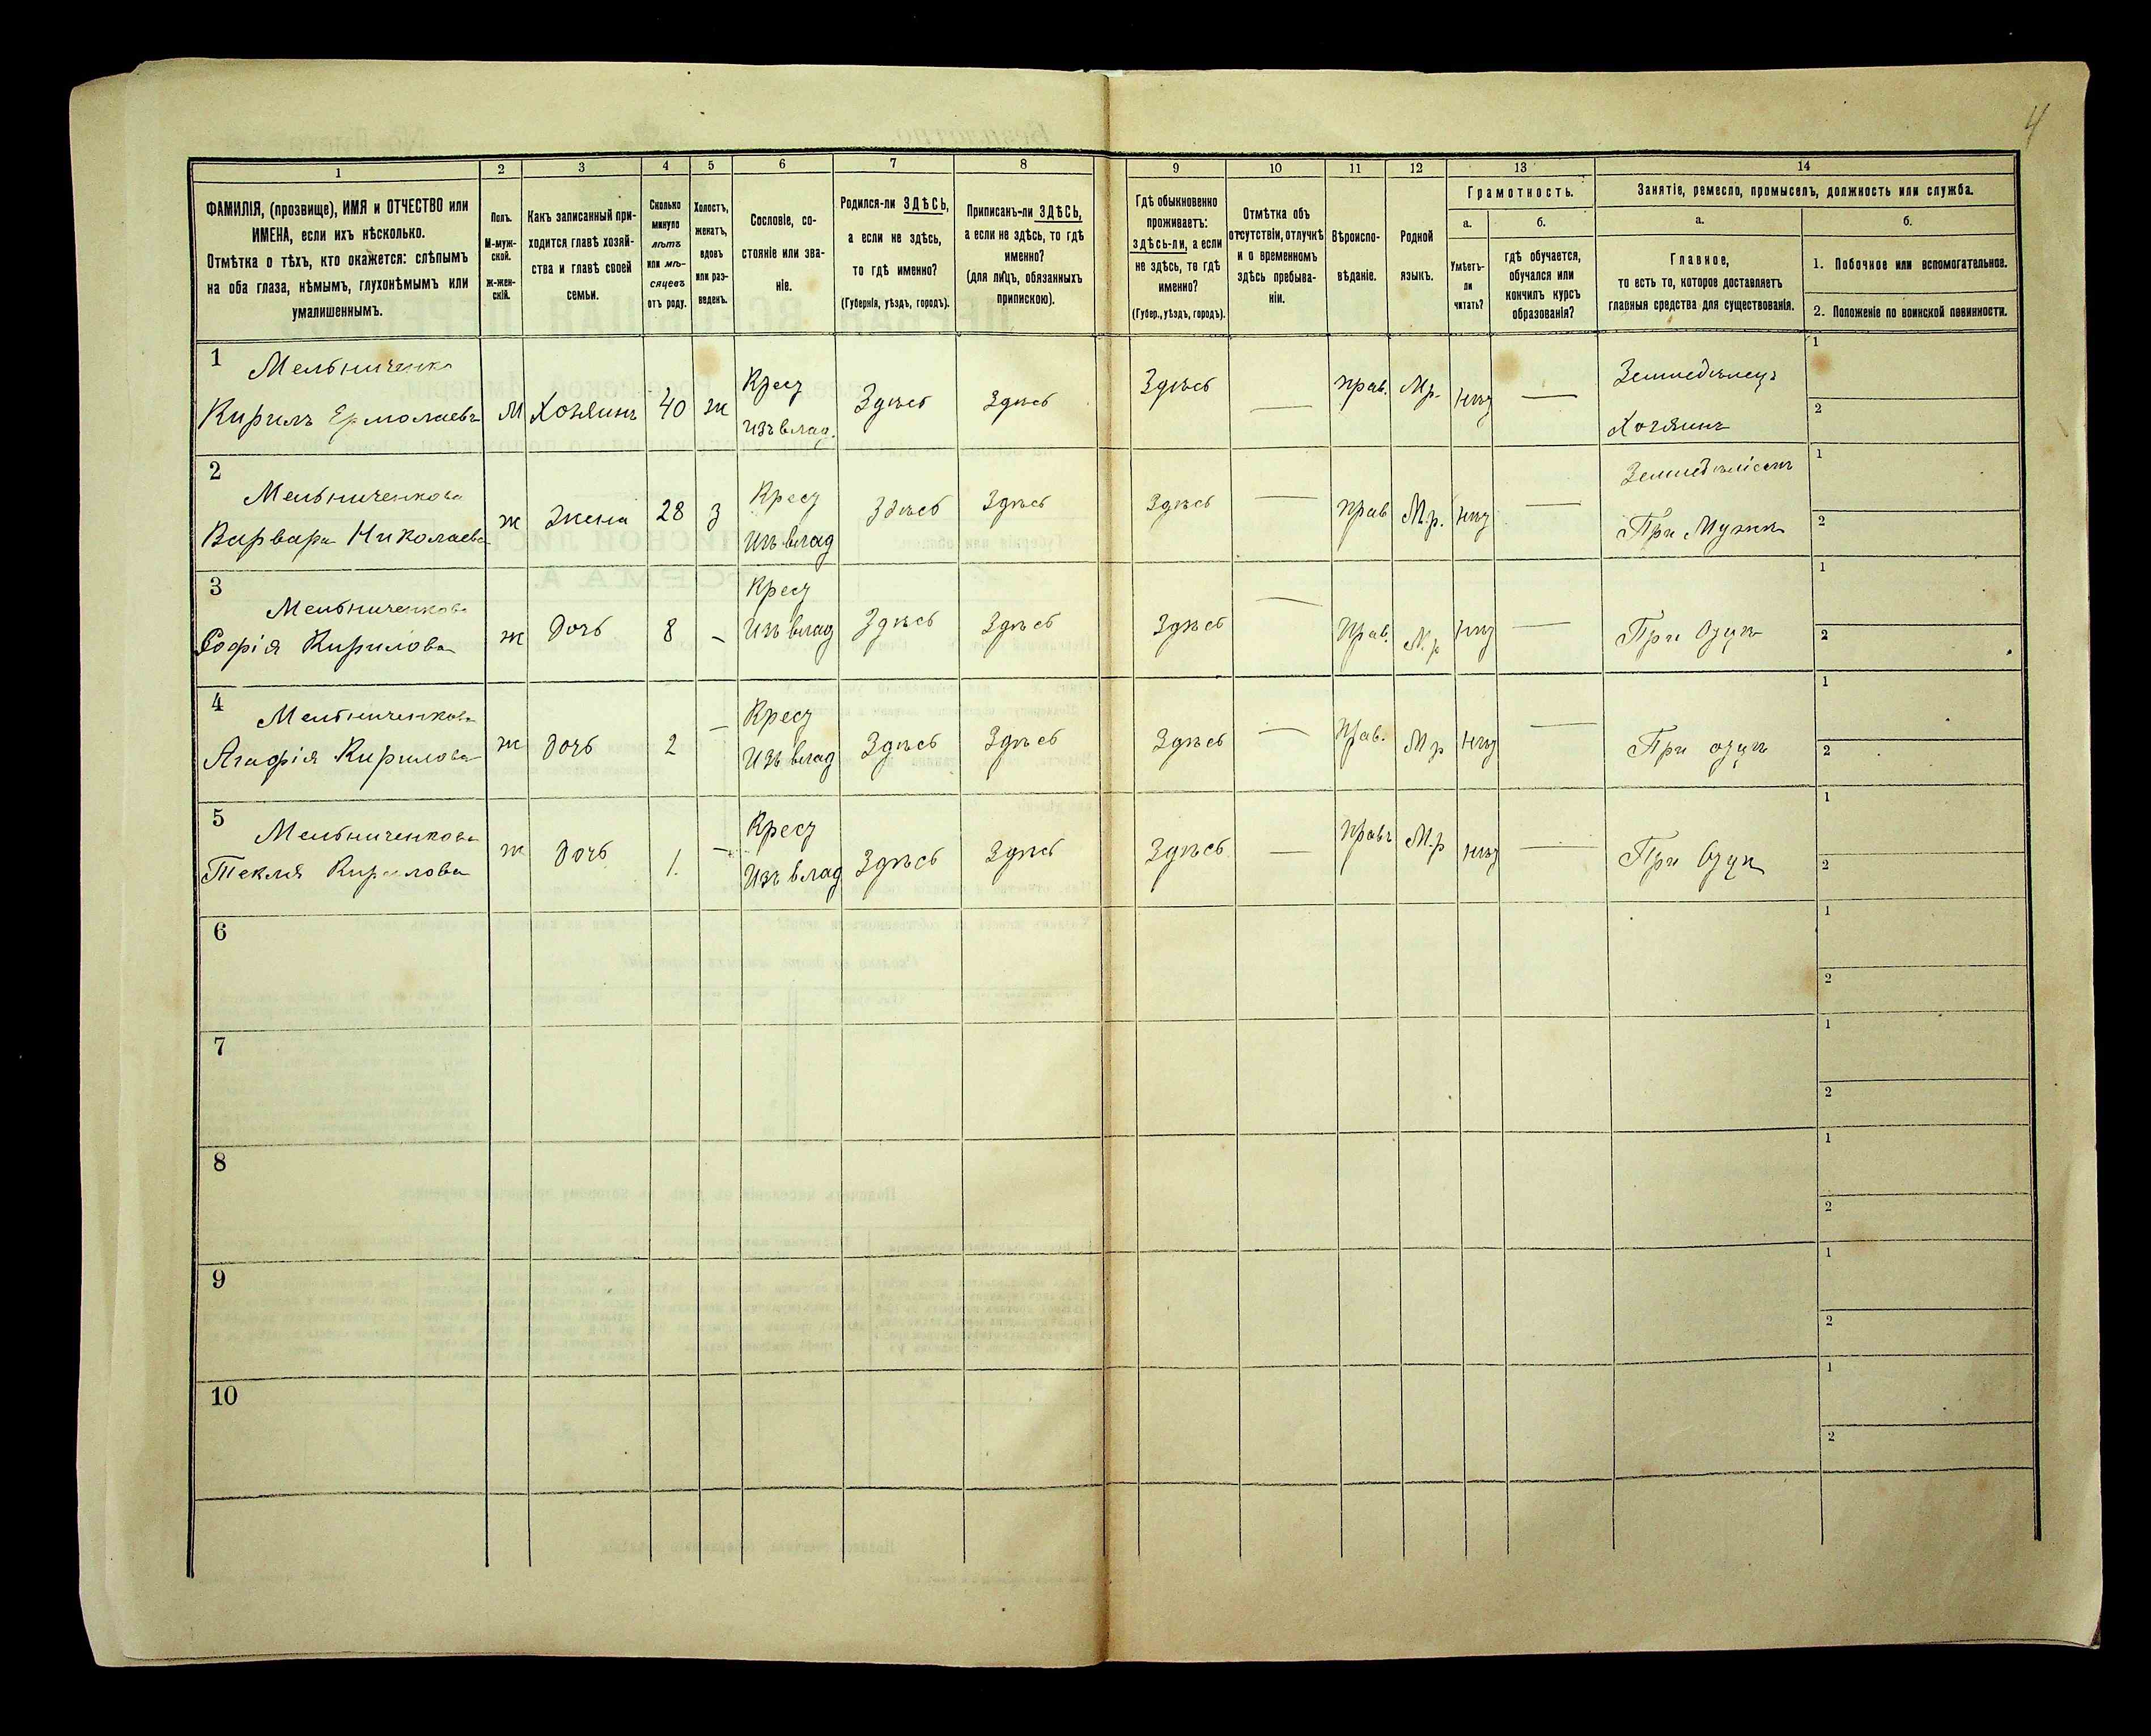 4
1 2 3 4 5 6 7 8 9 10 11 12 13 14
ФАМИЛІЯ, (прозвище), ИМЯ и ОТЧЕСТВО или
ИМЕНА, если ихъ нѣсколько.
Отмѣтка о тѣхъ, кто окажется: слѣпымъ
на оба глаза, нѣмымъ, глухонѣмымъ или
умалишеннымъ.
Полъ.
М-муж-
ской.
Ж-жен-
скій.
Какъ записанный при-
ходится главѣ хозяй-
ства и главѣ своей
семьи.
Сколько
минуло
лѣтъ
или мѣ-
сяцевъ
отъ роду.
Холостъ,
женатъ,
вдовъ
или раз-
веденъ.
Сословіе, со-
стояніе или зва-
ніе.
Родился-ли ЗДѢСЬ,
а если не здѣсь,
то гдѣ именно?
(Губернія, уѣздъ, городъ).
Приписанъ-ли ЗДѢСЬ,
а если не здѣсь, то гдѣ
именно?
(для лицъ, обязанныхъ
припискою).
Гдѣ обыкновенно
проживаетъ:
здѣсь-ли, а если
не здѣсь, то гдѣ
именно?
(Губер., уѣздъ, городъ).
Отмѣтка объ
отсутствіи, отлучкѣ
и о временномъ
здѣсь пребыва-
ніи.
Вѣроиспо-
вѣданіе.
Родной
языкъ.
Грамотность.
а.
Умѣетъ-
ли
читать?
б.
гдѣ обучается,
обучался или
кончилъ курсъ
образованія?
Занятіе, ремесло, промыселъ, должность или служба.
а.
Главное,
то есть то, которое доставляетъ
главныя средства для существованія.
б.
1. Побочное или вспомогательное.
2. Положеніе по воинской повинности.
1 Мельниченко Крест Земледѣлецъ 1
Кирилъ Ермолаевъ М Хозяинъ 40 ж изъ влад. Здѣсь Здѣсь Здѣсь — прав. Мр. нѣт — Хозяинъ 2
2 Мельниченкова Крест 1
Варвара Николаева ж Жена 28 з изъ влад Здѣсь Здѣсь Здѣсь — прав М.р. нѣт — При Мужѣ 2
3 Мельниченкова Крест 1
Софія Кирилова ж Дочь 8 – Изъ влад Здѣсь Здѣсь Здѣсь — Прав. М.р нѣт — При Отцѣ 2
4 Мельниченкова Крест 1
Агафія Кирилова ж дочь 2 – Изъ влад Здѣсь Здѣсь Здѣсь — Прав. Мр нѣт — При отцѣ 2
5 Мельниченкова Крест 1
Текля Кирилова ж дочь 1. – Изъ влад Здѣсь Здѣсь Здѣсь — Правъ М.р нѣт — При Отцѣ 2
6 1
2
7 1
2
8 1
2
9 1
2
10 1
2